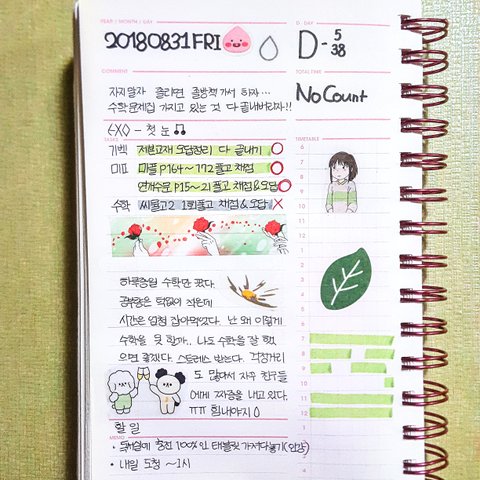 YEAR / MONTH / DAY
20180831 FRI
D-DAY
D - 5
38
COMMENT
자지말자 졸리면 졸방책가서 하자...
수학문제집 가지고 있는 것 다 끝내버리자!!
TOTAL TIME
No Count
EXO - 첫 눈
TASKS
TIMETABLE
기벡 오답정리 다 끝내기
미Ⅱ 미플 P164~172 풀고 채점
P15~21 풀고 채점 & 오답
수학 씨뮬 2 1회 풀고 채점 & 오답 X
6
7
8
9
10
11
12
1
2
3
4
5
6
7
8
9
10
11
12
1
하루종일 수학만 했다.
공부량은 턱없이 적은데
시간은 엄청 잡아먹었다. 난 왜 이렇게
수학을 못 할까.. 나도 수학을 잘 했
으면 좋겠다. 스트레스 받는다. 걱정거리
도 많아서 자꾸 친구들
에게 짜증을 내고 있다.
ㅠㅠ 힘내야지
할 일
MEMO
충전 100%인 태블릿 가져다놓기 (인강)
• 내일 도청 ~1시